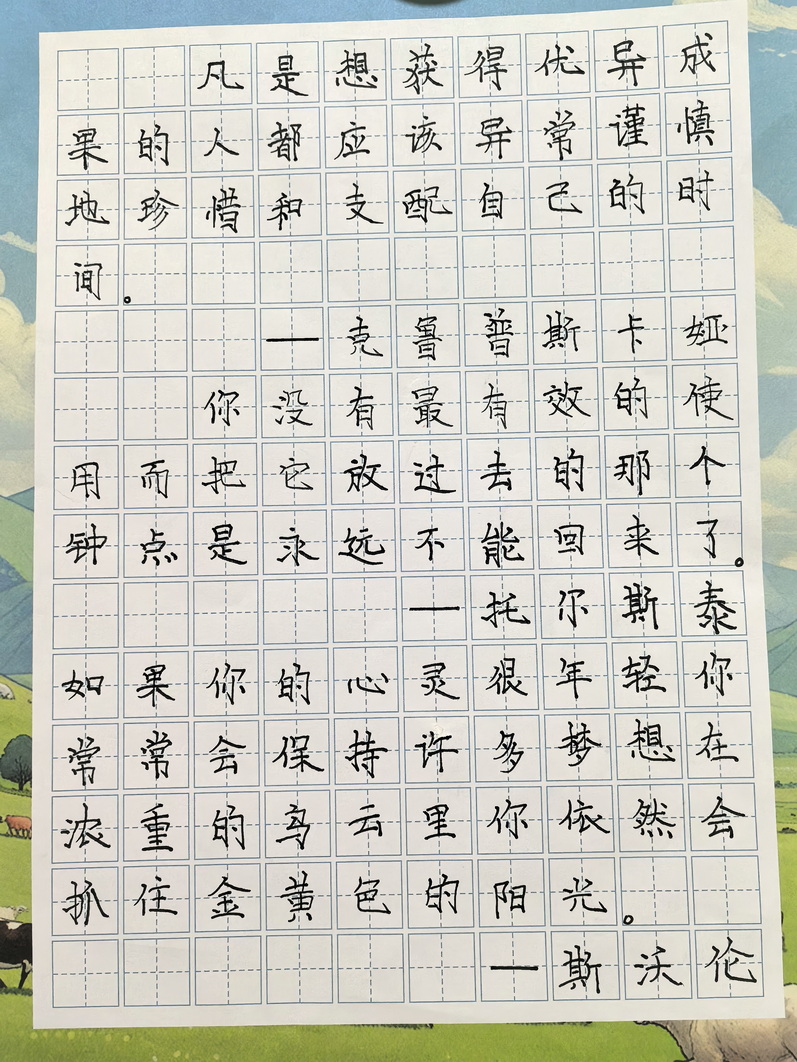 凡是想获得优异成
果的人都应该异常谨慎
地珍惜和支配自己的时
间。
—克鲁普斯卡娅
你没有最有效的使
用而把它放过去的那个
钟点是永远不能回来了。
—托尔斯泰
如果你的心灵很年轻你
常常会保持许多梦想在
浓重的乌云里你依然会
抓住金黄色的阳光。
—斯沃伦